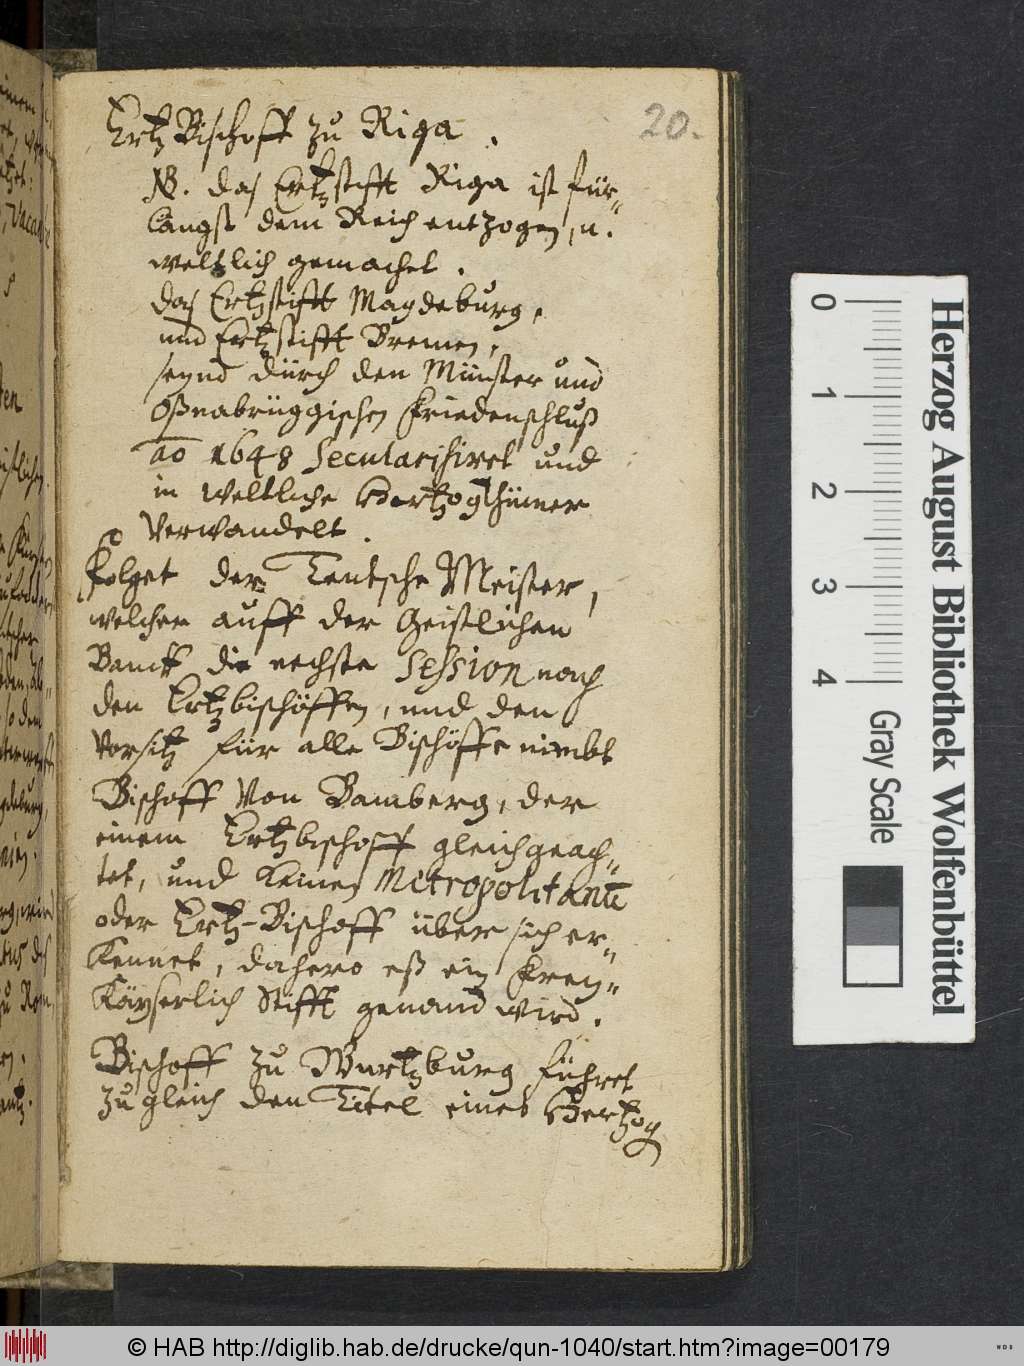 20.
ErtzBischoff zu Riga.
NB. das Ertzstifft Riga ist für-
längst dem Reich entzogen, u.
weltlich gemachet.
das Ertzstifft Magdeburg,
und Ertzstifft Bremen,
seynd dürch den Münster und
Oßnabrüggischen Friedenschluß
ao 1648 Secularisiret und
in Weltliche Hertzogthümer
Verwandelt.
Folget der Teutsche Meister,
welcher auff der Geistlichen
Banck die nechste Session nach
den Ertzbischöffen, und den
Vorsitz für alle Bischöffe nimbt
Bischoff Von Bamberg, der
einem Ertzbischoff gleichgeach-
tet, und keinen Metropolitanū
oder Ertz-Bischoff über sich er-
kennet, dahero eß ein Frey-
Käyserlich Stifft genand wird.
Bischoff zu Wurtzburg führet
zugleich den Titel eines Hertzog
Herzog August Bibliothek Wolfenbüttel
0 1 2 3 4
Gray Scale
© HAB http://diglib.hab.de/drucke/qun-1040/start.htm?image=00179